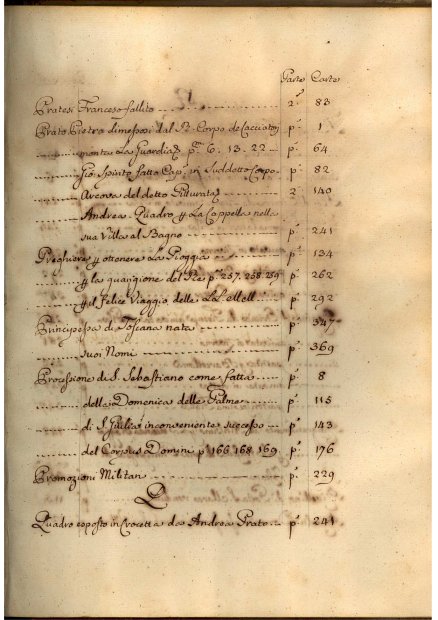 Parte Carte
Pratesi Francesco fallito 2ª 83
Prato Pietro dimessosi dal R. Corpo de Cacciatori pª 1
monta La Guardia pª 6. 13. 22 pª 64
Gio. Spirito fatto Cap. in Suddetto Corpo pª 82
Arcora del detto 2ª 140
Andrea Quadro p La Cappella nella
sua Villa al Bagno pª 241
Preghiere p ottenere La Pioggia pª 134
p la guarigione del Re pª 257. 258. 259 pª 262
pel Felice Viaggio delle LL. MM. pª 292
Principessa di Toscana nata pª 347
suoi Nomi pª 369
Processione di S. Sebastiano come fatta pª 8
della Domenica delle Palme pª 115
di S. Giulia inconveniente successo pª 143
del Corpus Domini pª 166 168 169 pª 176
Promozioni Militari pª 229
Q
Quadro esposto in Crocetta da Andrea Prato pª 241